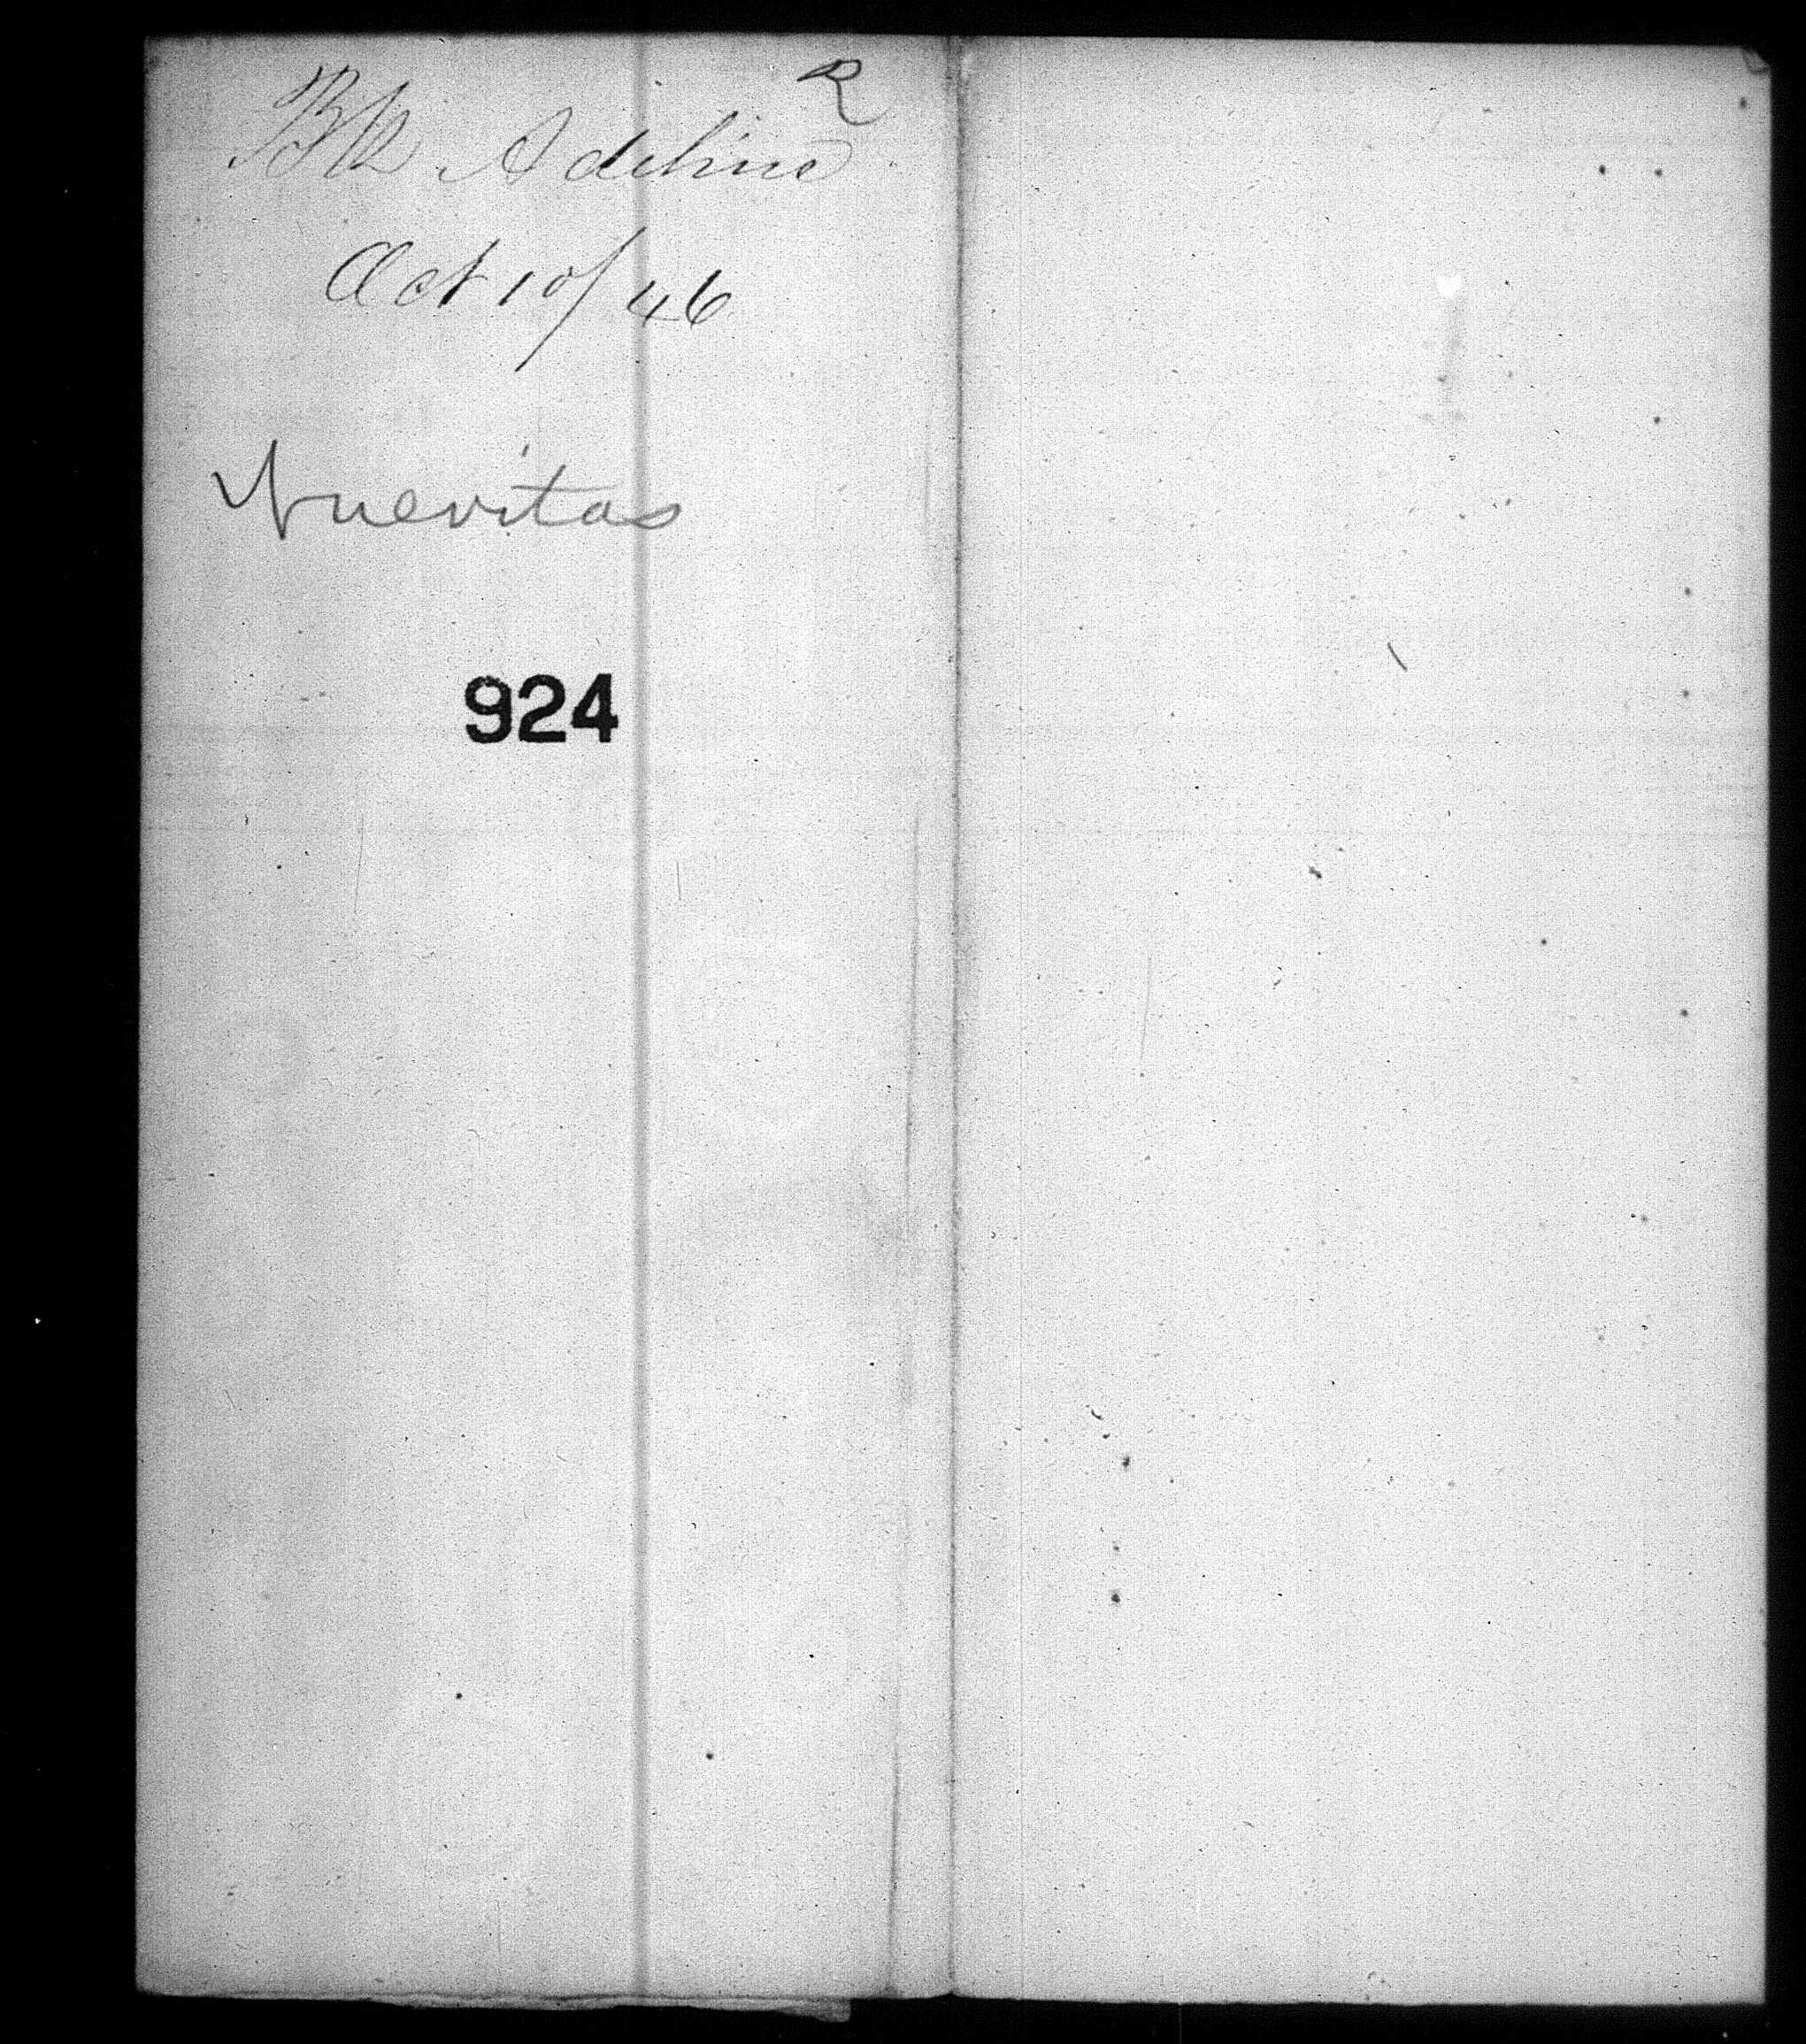 R
Bk Adeline
Oct 10/46
Nuevitas
924